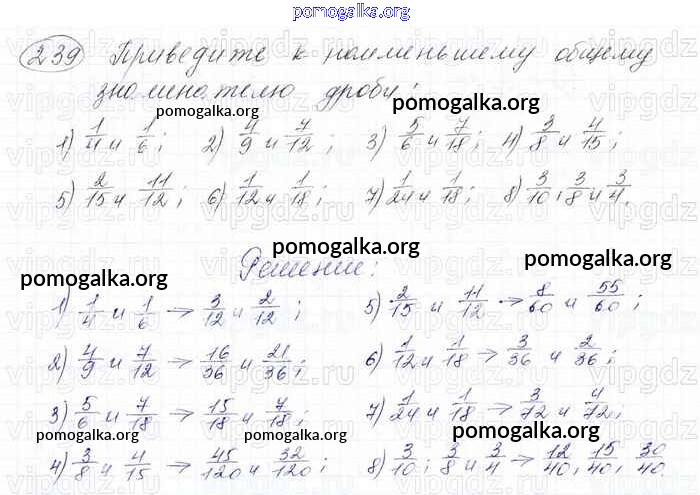 pomogalka.org
239 Приведите к наименьшему общему
знаменателю дроби:
pomogalka.org
1) 1/4 и 1/6; 2) 4/9 и 7/12; 3) 5/6 и 7/18; 4) 3/8 и 4/15;
pomogalka.org
vipgdz.ru
5) 2/15 и 11/12; 6) 1/12 и 1/18; 7) 1/24 и 1/18; 8) 3/10; 3/8 и 3/4.
pomogalka.org
Решение:
pomogalka.org
pomogalka.org
1) 1/4 и 1/6 → 3/12 и 2/12; 5) 2/15 и 11/12 → 8/60 и 55/60;
2) 4/9 и 7/12 → 16/36 и 21/36; 6) 1/12 и 1/18 → 3/36 и 2/36;
3) 5/6 и 7/18 → 15/18 и 7/18; 7) 1/24 и 1/18 → 3/72 и 4/72;
pomogalka.org
pomogalka.org
pomogalka.org
4) 3/8 и 4/15 → 45/120 и 32/120; 8) 3/10; 3/8 и 3/4 → 12/40, 15/40, 30/40